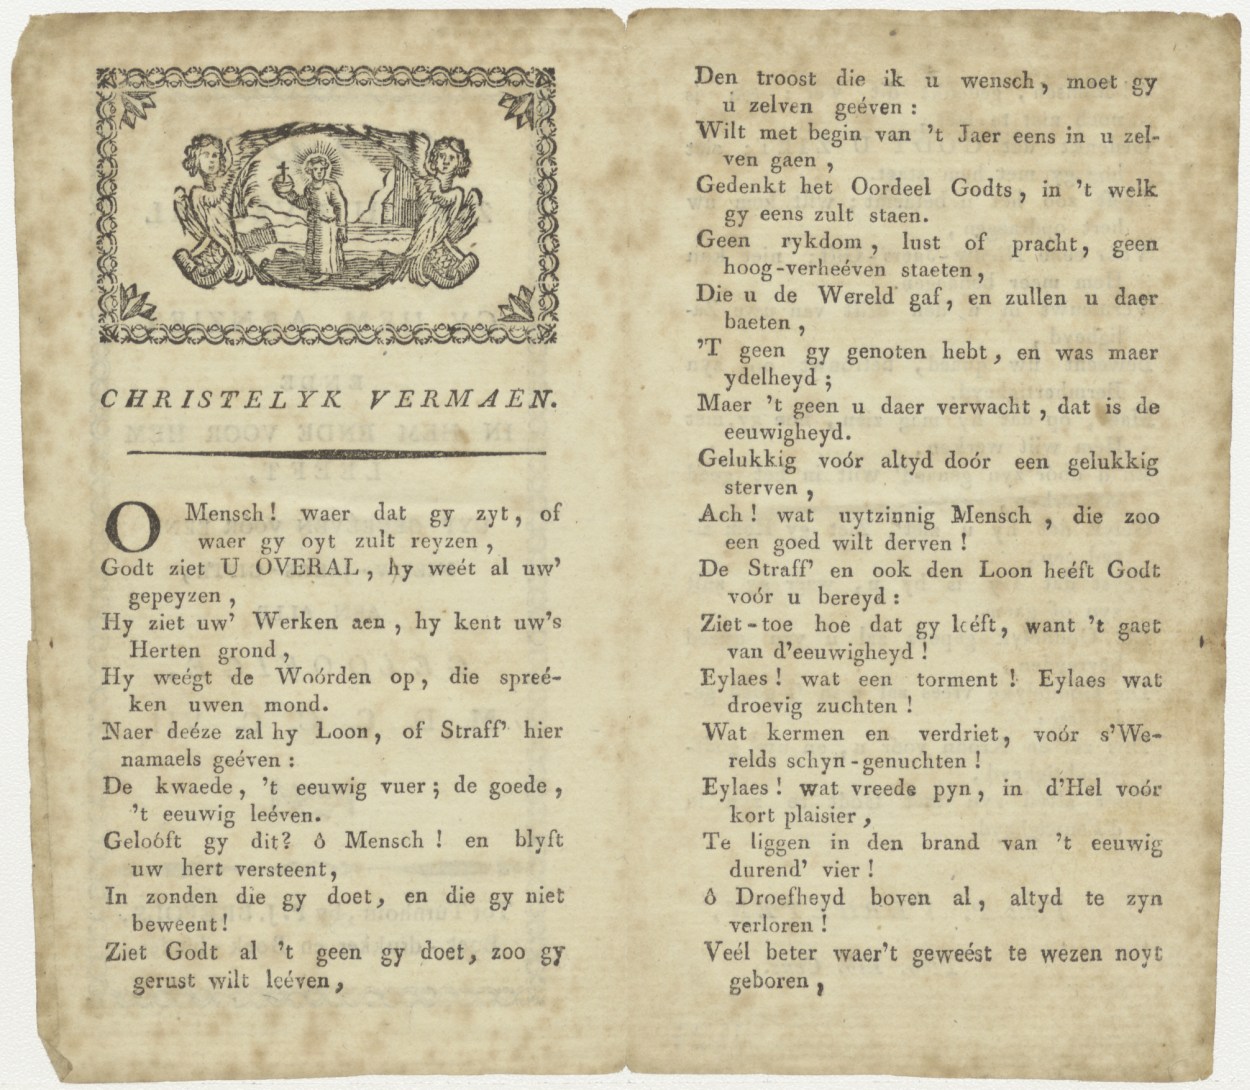 CHRISTELYK VERMAEN.
O Mensch! waer dat gy zyt, of
waer gy oyt zult reyzen,
Godt ziet U OVERAL, hy weét al uw'
gepeyzen,
Hy ziet uw' Werken aen, hy kent uw's
Herten grond,
Hy weégt de Woórden op, die spreé-
ken uwen mond.
Naer deéze zal hy Loon, of Straff' hier
namaels geéven:
De kwaede, 't eeuwig vuer; de goede,
't eeuwig leéven.
Geloóft gy dit? ô Mensch! en blyft
uw hert versteent,
In zonden die gy doet, en die gy niet
beweent!
Ziet Godt al 't geen gy doet, zoo gy
gerust wilt leéven,
Den troost die ik u wensch, moet gy
u zelven geéven:
Wilt met begin van 't Jaer eens in u zel-
ven gaen,
Gedenkt het Oordeel Godts, in 't welk
gy eens zult staen.
Geen rykdom, lust of pracht, geen
hoog-verheéven staeten,
Die u de Wereld gaf, en zullen u daer
baeten,
'T geen gy genoten hebt, en was maer
ydelheyd;
Maer 't geen u daer verwacht, dat is de
eeuwigheyd.
Gelukkig voór altyd doór een gelukkig
sterven,
Ach! wat uytzinnig Mensch, die zoo
een goed wilt derven!
De Straff' en ook den Loon heéft Godt
voór u bereyd:
Ziet-toe hoe dat gy leéft, want 't gaet
van d'eeuwigheyd!
Eylaes! wat een torment! Eylaes wat
droevig zuchten!
Wat kermen en verdriet, voór s'We-
relds schyn-genuchten!
Eylaes! wat vreede pyn, in d'Hel voór
kort plaisier,
Te liggen in den brand van 't eeuwig
durend' vier!
ô Droefheyd boven al, altyd te zyn
verloren!
Veél beter waer't geweést te wezen noyt
geboren,